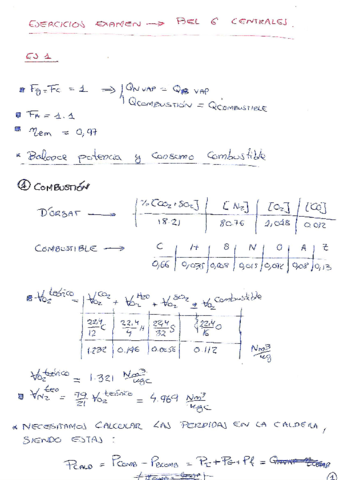 EJERCICIOS EXAMEN → DEL 6 CENTRALES.
EJ 1
Fg = Fc = 1 ⟹ QN VAP = QR VAP
QCOMBUSTIÓN = QCOMBUSTIBLE
FA = 1.1
ηem = 0,97
Balance potencia y Consumo Combustible
① COMBUSTIÓN
% [CO2 + SO2] [N2] [O2] [CO]
D'ORSAT → 18.21 80.76 0.012
C H S N O A Z
COMBUSTIBLE → 0,66 0,015 0,13
VO2 teórico = VO2 CO2 + VO2 H2O + VO2 SO2 ± VO2 combustible
22.4/12 C 22.4/4 H 22.4/32 S 22.4/16 O
1.232 0.196 0.112 Nm3/kg
VO2 teórico = 1.321 Nm3/kgc
VN2 teo = 79/21 VO2 teórico = 4.969 Nm3/kgc
NECESITAMOS CALCULAR LAS PERDIDAS EN LA CALDERA,
SIENDO ESTAS:
PCALD = PCOMB - PBCOMB =
①